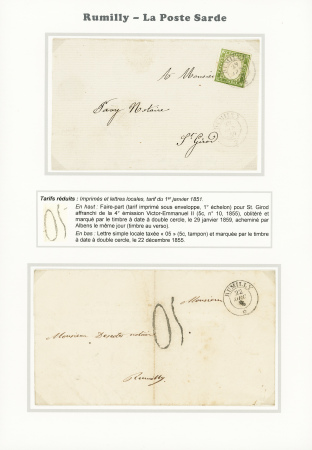 Rumilly – La Poste Sarde
A Monsieur
Favy Notaire
St Girod
Tarifs réduits : imprimés et lettres locales, tarif du 1er janvier 1851.
En haut : Faire-part (tarif imprimé sous enveloppe, 1° échelon) pour St. Girod
affranchi de la 4° émission Victor-Emmanuel II (5c, n° 10, 1855), oblitéré et
marqué par le timbre à date à double cercle, le 29 janvier 1859, acheminé par
Albens le même jour (timbre au verso).
En bas : Lettre simple locale taxée « 05 » (5c, tampon) et marquée par le timbre
à date à double cercle, le 22 décembre 1855.
05
RUMILLY
22
Monsieur
05
Monsieur notaire
Rumilly